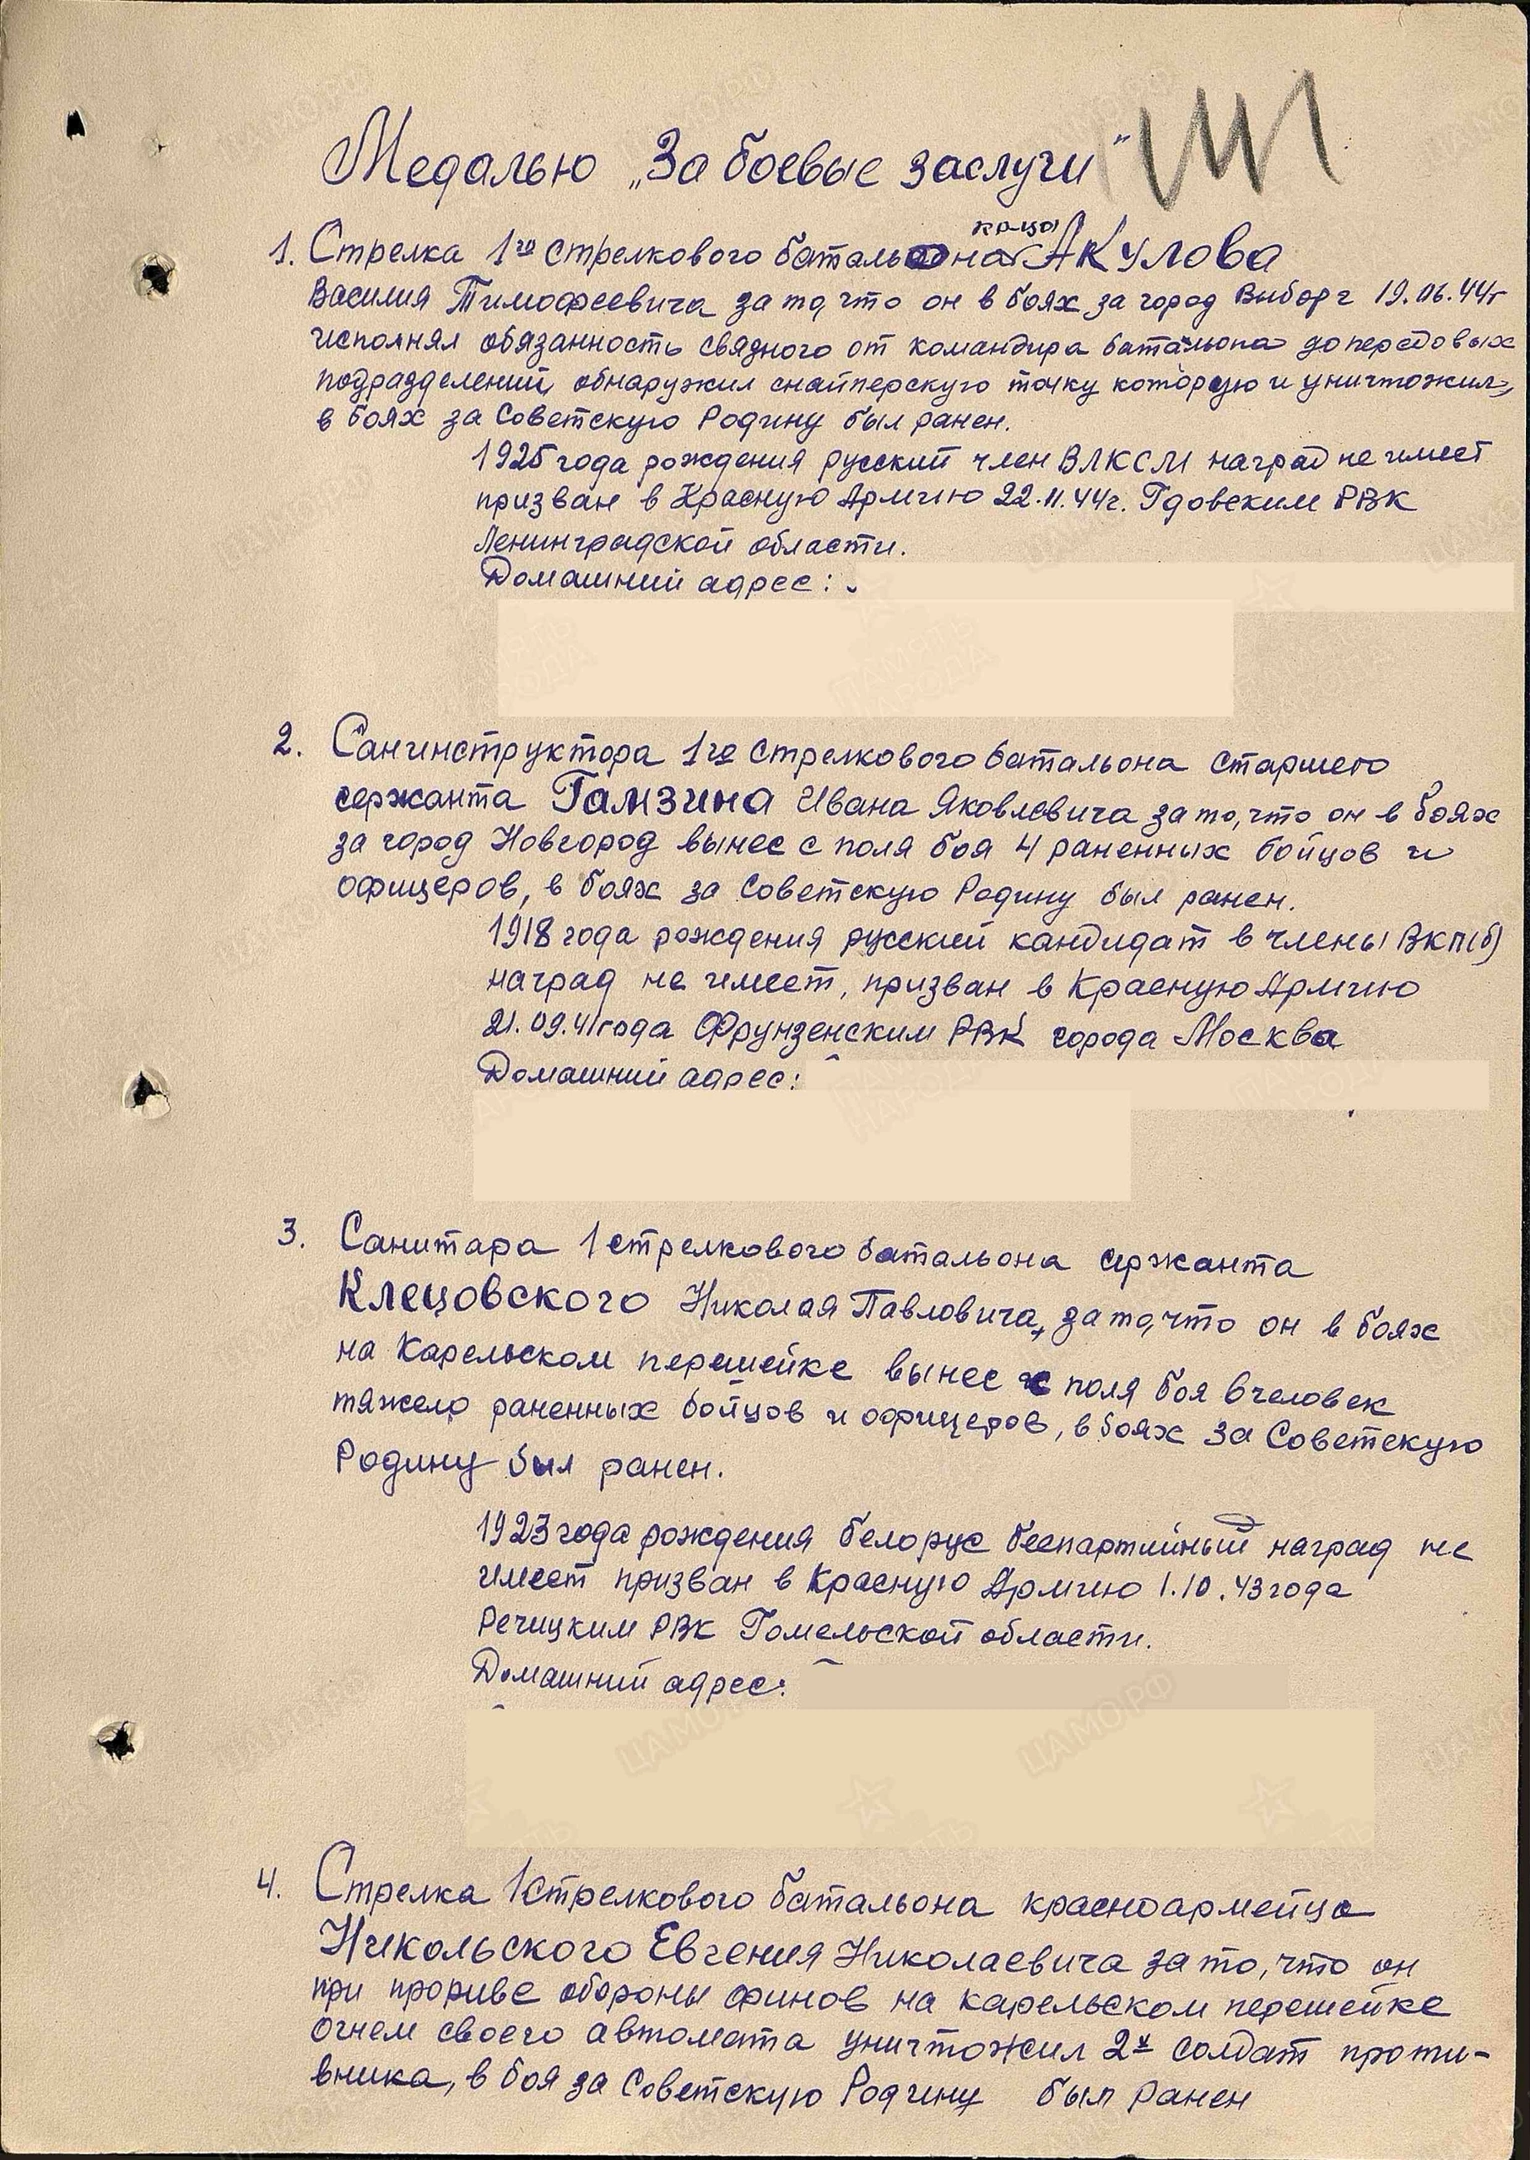 Медалью „За боевые заслуги"
кр-ца
1. Стрелка 1го стрелкового батальона Акулова
Василия Тимофеевича за то, что он в боях за город Выборг 19.06.44г
исполнял обязанность связного от командира батальона до передовых
подразделений, обнаружил снайперскую точку которую и уничтожил,
в боях за Советскую Родину был ранен.
1925 года рождения русский член ВЛКСМ наград не имеет
призван в Красную Армию 22.11.44г. Гдовским РВК
Ленинградской области.
Домашний адрес:
2. Санинструктора 1го стрелкового батальона старшего
сержанта Гамзина Ивана Яковлевича за то, что он в боях
за город Новгород вынес с поля боя 4 раненных бойцов и
офицеров, в боях за Советскую Родину был ранен.
1918 года рождения русский кандидат в члены ВКП(б)
наград не имеет, призван в Красную Армию
21.09.41года Фрунзенским РВК города Москва
Домашний адрес:
3. Санитара 1 стрелкового батальона сержанта
Клецовского Николая Павловича, за то, что он в боях
на Карельском перешейке вынес с поля боя 6 человек
тяжело раненных бойцов и офицеров, в боях за Советскую
Родину был ранен.
1923 года рождения белорус беспартийный наград не
имеет призван в Красную Армию 1.10.43 года
Речицким РВК Гомельской области.
Домашний адрес:
4. Стрелка 1 стрелкового батальона красноармейца
Никольского Евгения Николаевича за то, что он
при прориве обороны финов на карельском перешейке
огнем своего автомата уничтожил 2х солдат проти-
вника, в боя за Советскую Родину был ранен
ЦАМО.РФ
ПАМЯТЬ
НАРОДА